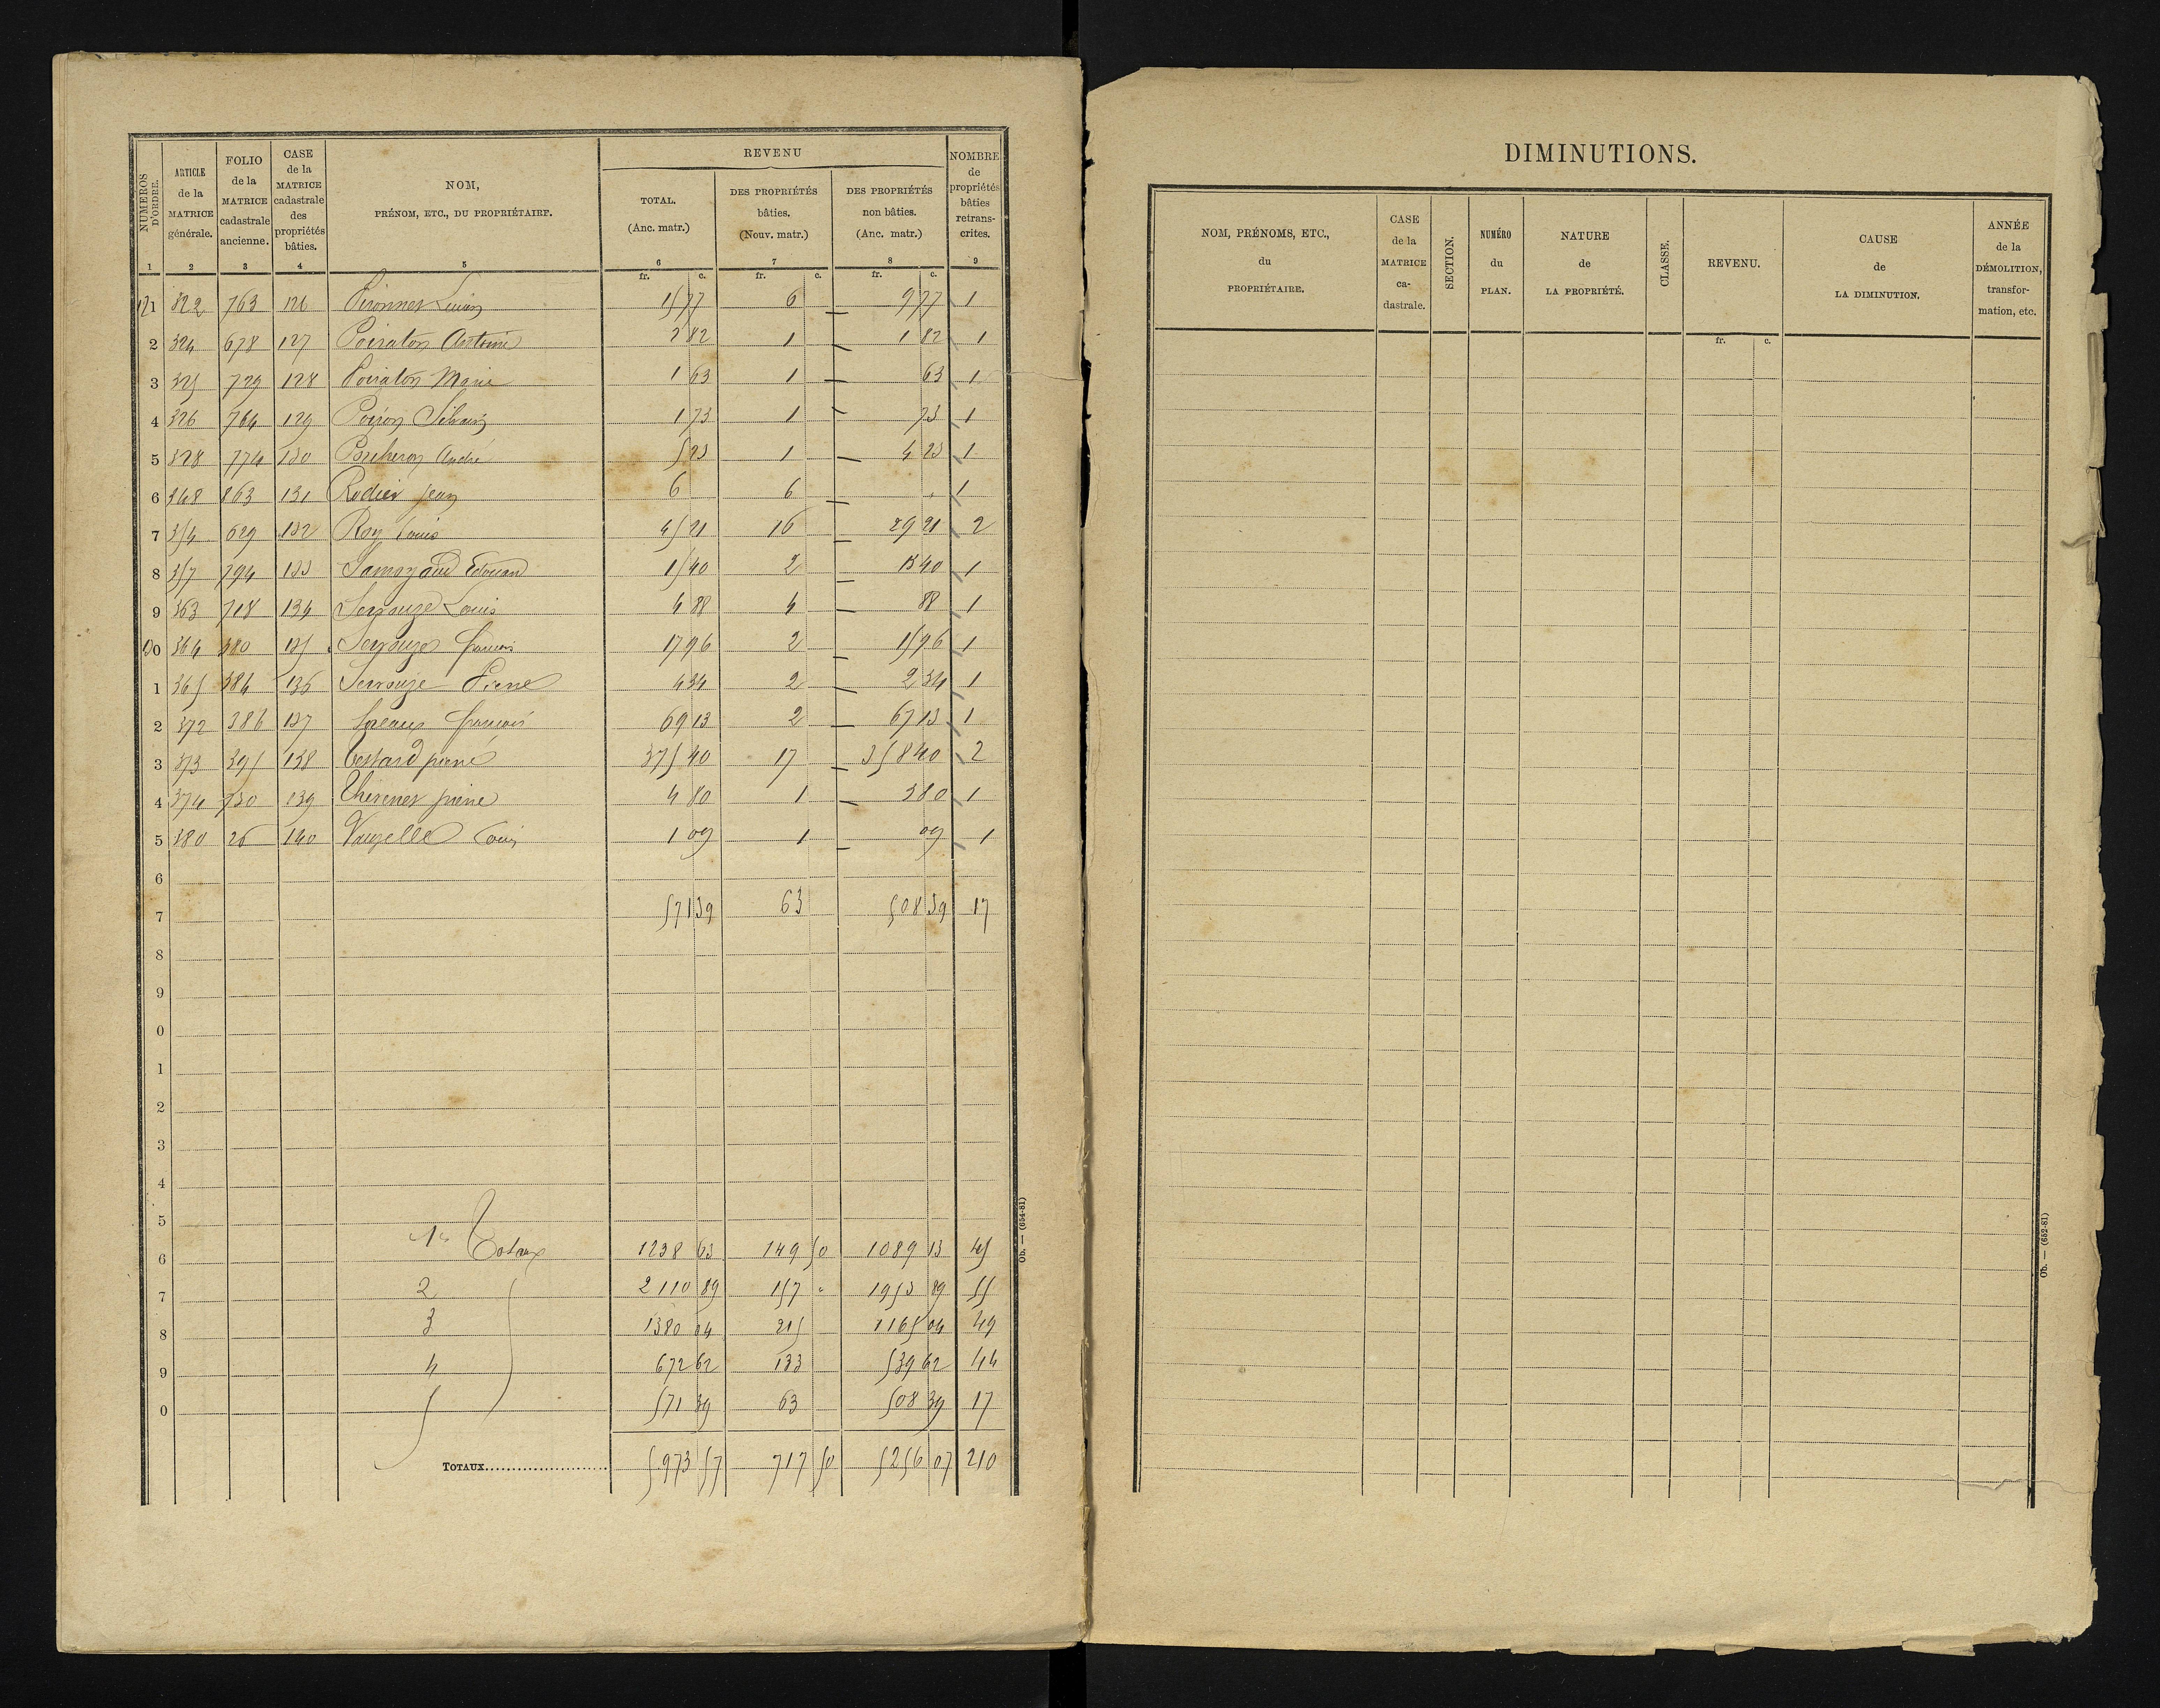 NUMÉROS D'ORDRE. ARTICLE de la MATRICE générale. FOLIO de la MATRICE cadastrale ancienne. CASE de la MATRICE cadastrale des propriétés bâties. NOM, PRÉNOM, ETC., DU PROPRIÉTAIRE. REVENU NOMBRE de propriétés bâties retrans-crites.
TOTAL. (Anc. matr.) DES PROPRIÉTÉS bâties. (Nouv. matr.) DES PROPRIÉTÉS non bâties. (Anc. matr.)
1 2 3 4 5 6 7 8 9
fr. c. fr. c. fr. c.
121 322 763 126 15 77 6 9 77 1
2 324 678 127 Poiraton Antoine 2 82 1 1 82 1
3 325 729 128 Poiraton Marie 1 63 1 63 1
4 326 764 129 Poiron 1 73 1 73 1
5 328 774 130 Porcheron André 5 23 1 4 23 1
6 348 863 131 Rodier Jean 6 6 1
7 354 629 132 Roy Louis 45 21 16 29 21 2
8 357 794 133 Edouard 15 40 2 13 40 1
9 363 718 134 Serrouze Louis 4 88 4 88 1
130 364 380 135 Serrouze francois 17 96 2 15 96 1
1 365 384 136 Serrouze Pierre 4 34 2 2 34 1
2 372 386 137 francois 69 13 2 67 13 1
3 373 395 138 Testard pierre 375 40 17 358 40 2
4 374 730 139 Thevenet pierre 4 80 1 3 80 1
5 380 26 140 Vauzelle Louis 1 09 1 09 1
6
7 571 39 63 508 39 17
8
9
0
1
2
3
4
5
6 1er Totaux 1238 63 149 50 1089 13 45
7 2 2110 89 157 " 1953 89 55
8 3 1380 04 215 1165 04 49
9 4 672 62 133 539 62 44
0 5 571 39 63 508 39 17
TOTAUX 5973 57 717 50 5256 07 210
Ob. — (654-81)
DIMINUTIONS.
NOM, PRÉNOMS, ETC., du PROPRIÉTAIRE. CASE de la MATRICE ca-dastrale. SECTION. NUMÉRO du PLAN. NATURE de LA PROPRIÉTÉ. CLASSE. REVENU. CAUSE de LA DIMINUTION. ANNÉE de la DÉMOLITION, transfor-mation, etc.
fr. c.
Ob. — (652-81)